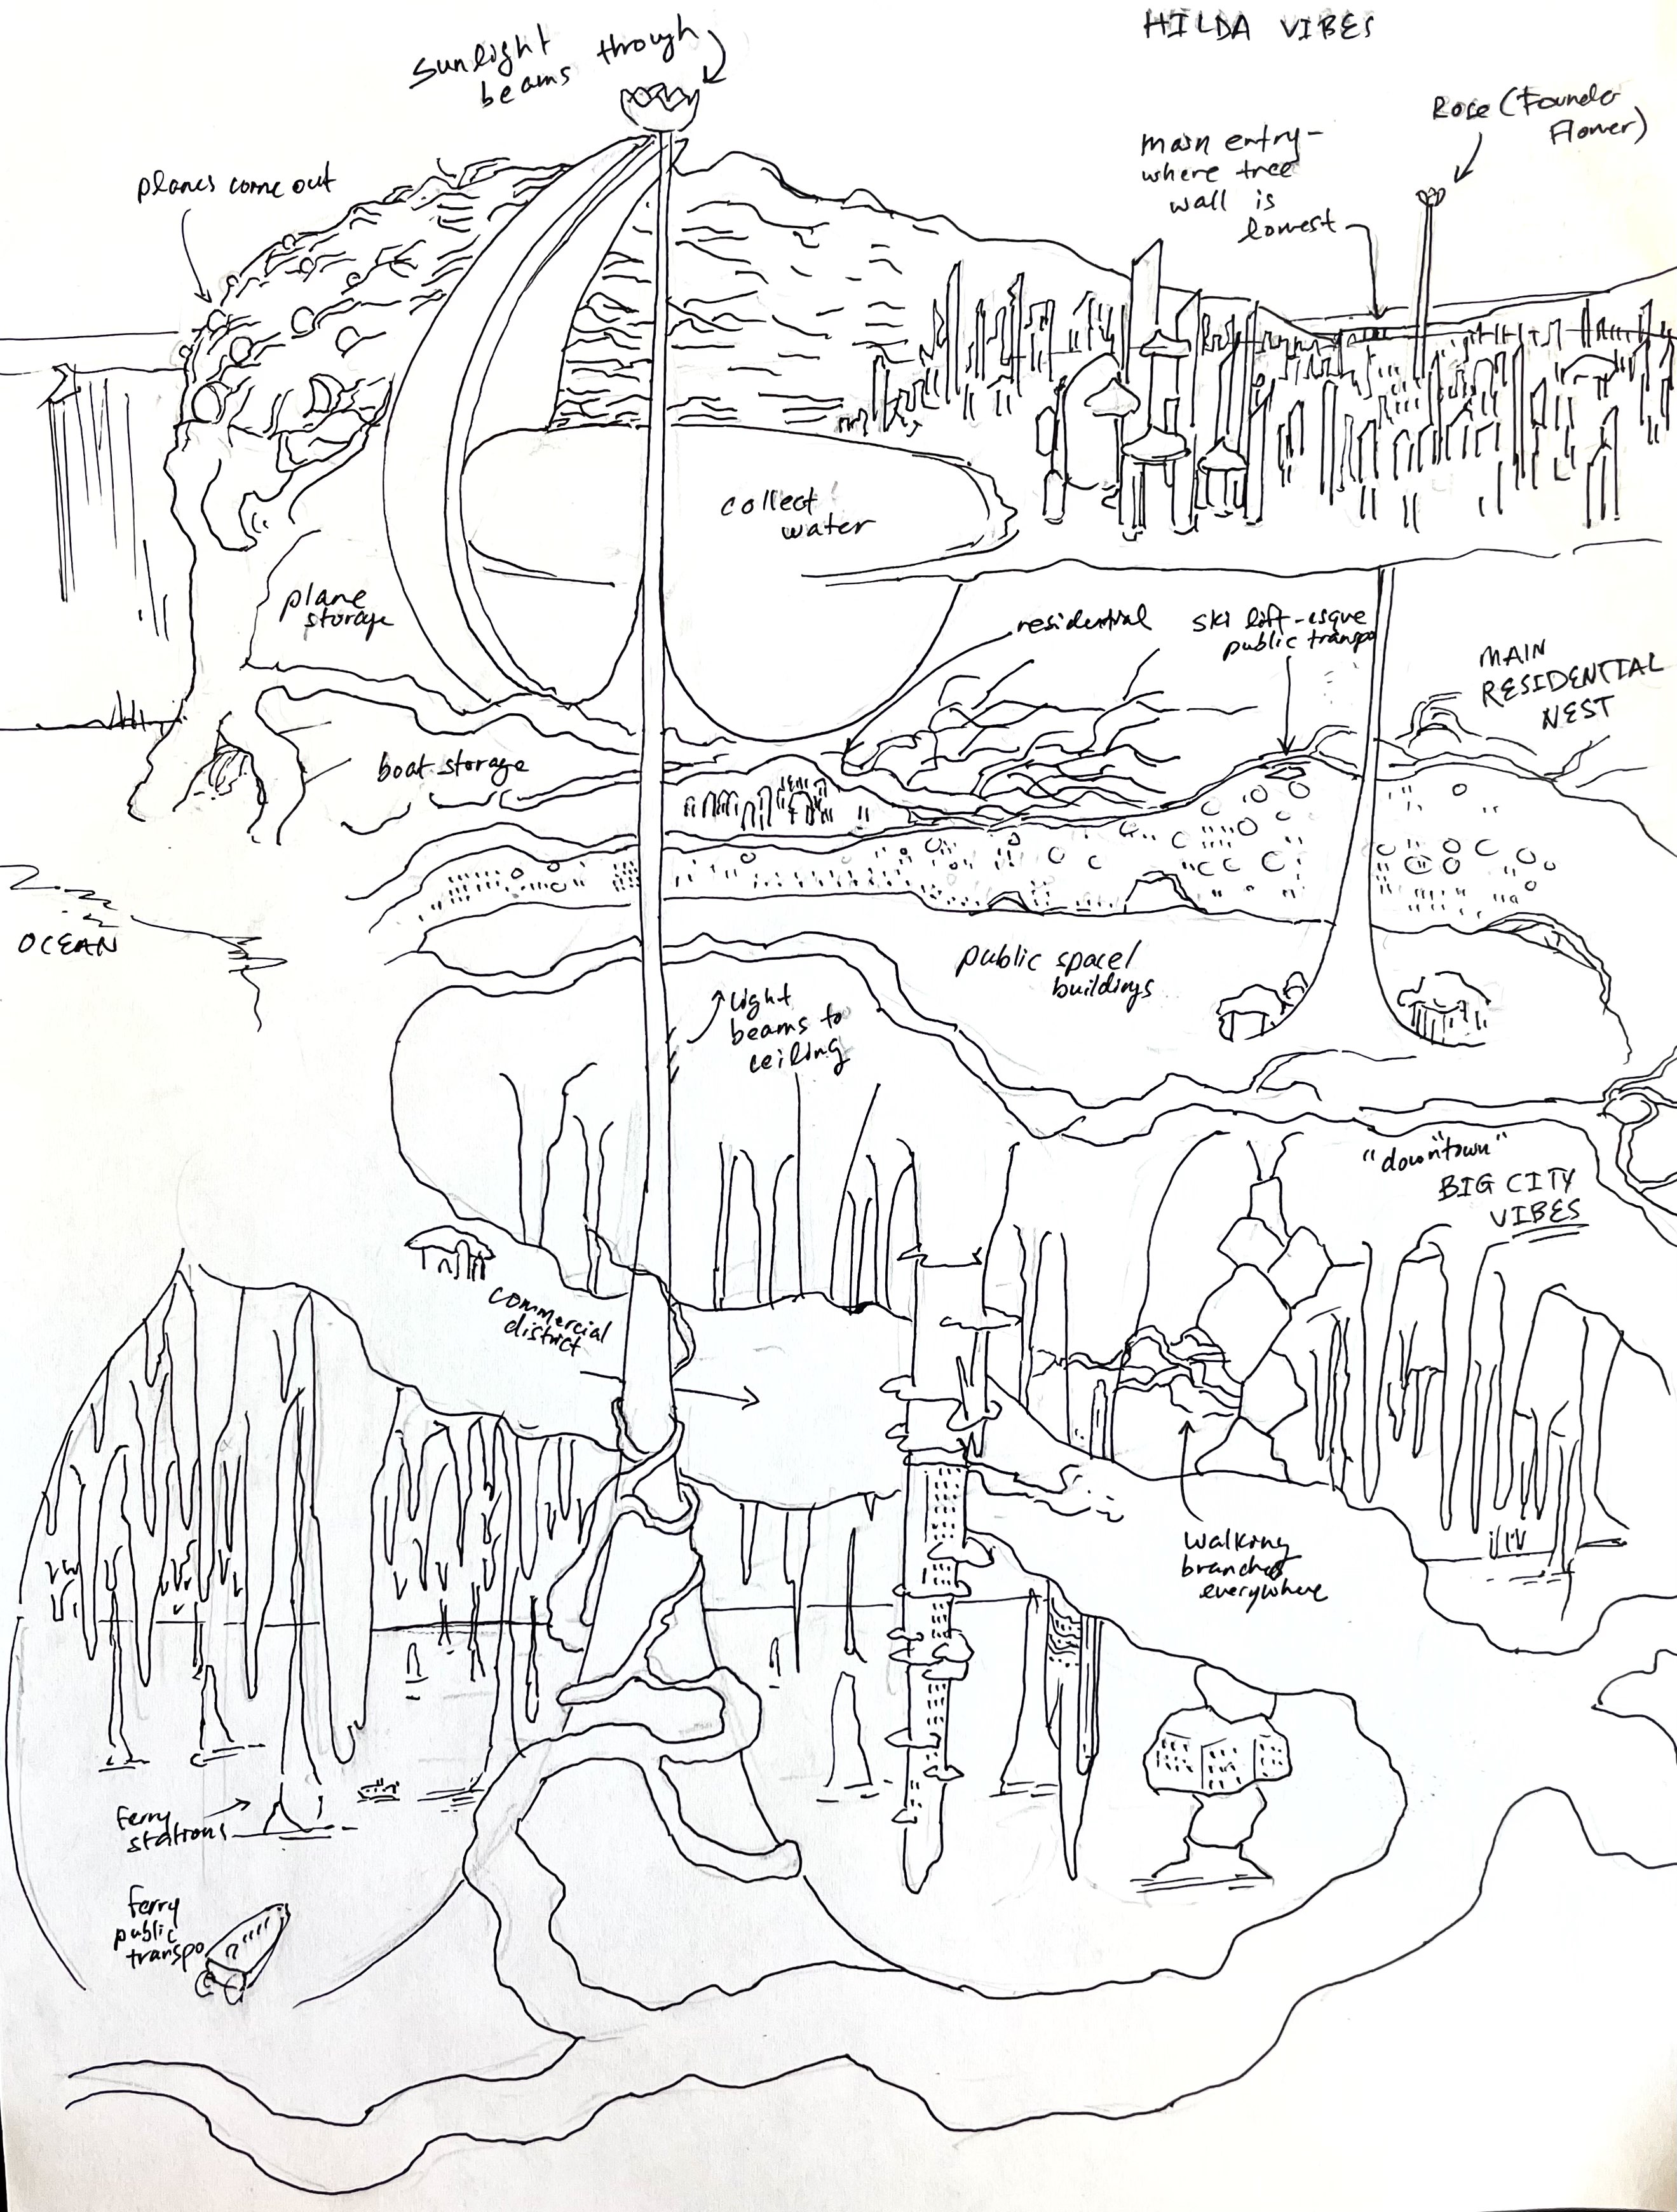 HILDA VIBES
Sunlight
beams through
Rose (Founder
Flower)
main entry-
where tree
wall is
lowest
planes come out
collect
water
plane
storage
residential
ski lift-esque
public transpo
MAIN
RESIDENTIAL
NEST
boat storage
OCEAN
public space/
buildings
light
beams to
ceiling
"downtown"
BIG CITY
VIBES
commercial
district
walking
branches
everywhere
ferry
stations
ferry
public
transpo